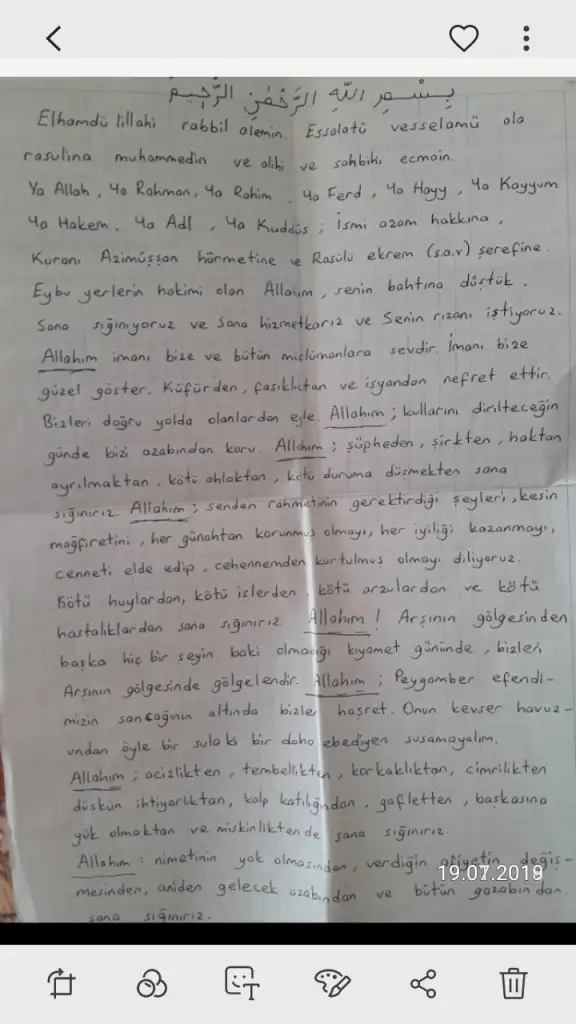 بِسْمِ اللهِ الرَّحْمٰنِ الرَّحِيمِ
Elhamdü lillahi rabbil alemin. Essalatü vesselamü ala
rasulina muhammedin ve alihi ve sahbihi ecmain.
Ya Allah, Ya Rahman, Ya Rahim, Ya Ferd, Ya Hayy, Ya Kayyum
Ya Hakem, Ya Adl, Ya Kuddüs; İsmi azam hakkına,
Kuranı Azimüşşan hürmetine ve Rasülü ekrem (s.a.v) şerefine.
Eybu yerlerin hakimi olan Allahım, senin bahtına düştük.
Sana sığınıyoruz ve Sana hizmetkarız ve Senin rızanı istiyoruz.
Allahım imanı bize ve bütün müslümanlara sevdir. İmanı bize
güzel göster. Küfürden, fasıklıktan ve isyandan nefret ettir.
Bizleri doğru yolda olanlardan eyle. Allahım; kullarını dirilteceğin
günde bizi azabından koru. Allahım; şüpheden, şirkten, haktan
ayrılmaktan, kötü ahlaktan, kötü duruma düşmekten sana
sığınırız. Allahım; senden rahmetinin gerektirdiği şeyleri, kesin
mağfiretini, her günahtan korunmuş olmayı, her iyiliği kazanmayı,
cenneti elde edip, cehennemden kurtulmuş olmayı diliyoruz.
Kötü huylardan, kötü islerden, kötü arzulardan ve kötü
hastalıklardan sana sığınırız. Allahım! Arşının gölgesinden
başka hiç bir seyin baki olmadığı kıyamet gününde, bizleri
Arsının gölgesinde gölgelendir. Allahım; Peygamber efendi-
mizin sancağının altında bizleri haşret. Onun kevser havuz-
undan öyle bir sula ki bir daha ebediyen susamayalım.
Allahım; acizlikten, tembellikten, korkaklıktan, cimrilikten
düskün ihtiyarlıktan, kalp katılığından, gafletten, başkasına
yük olmaktan ve miskinlikten de sana sığınırız.
Allahım: nimetinin yok olmasından, verdiğin afiyetin değiş-
mesinden, aniden gelecek azabından ve bütün gazabından
sana sığınırız.
19.07.2019